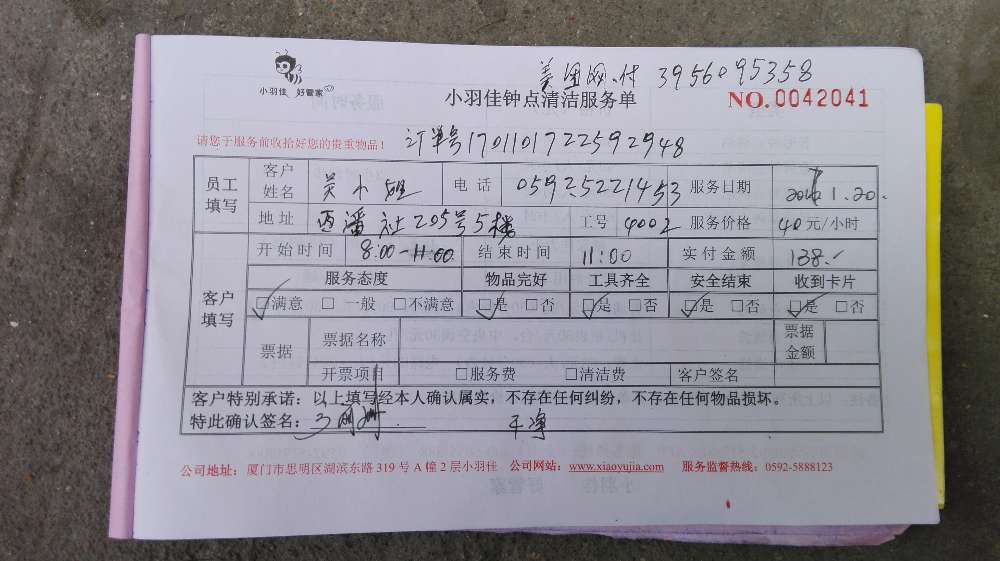 美团网.付 3956095358
小羽佳 好管家
小羽佳钟点清洁服务单
NO.0042041
请您于服务前收拾好您的贵重物品!
订单号170110172259 2948
员工填写 客户姓名 吴小姐 电话 05925221453 服务日期 1.20.
地址 社205号5楼 工号 4002 服务价格 40元/小时
客户填写 开始时间 8:00-11:00 结束时间 11:00 实付金额 138.-
服务态度 物品完好 工具齐全 安全结束 收到卡片
☑满意 □一般 □不满意 ☑是 □否 ☑是 □否 ☑是 □否 ☑是 □否
票据 票据名称 票据金额
开票项目 □服务费 □清洁费 客户签名
客户特别承诺:以上填写经本人确认属实,不存在任何纠纷,不存在任何物品损坏。
特此确认签名: 干净
公司地址:厦门市思明区湖滨东路319号A幢2层小羽佳 公司网站:www.xiaoyujia.com 服务监督热线:0592-5888123